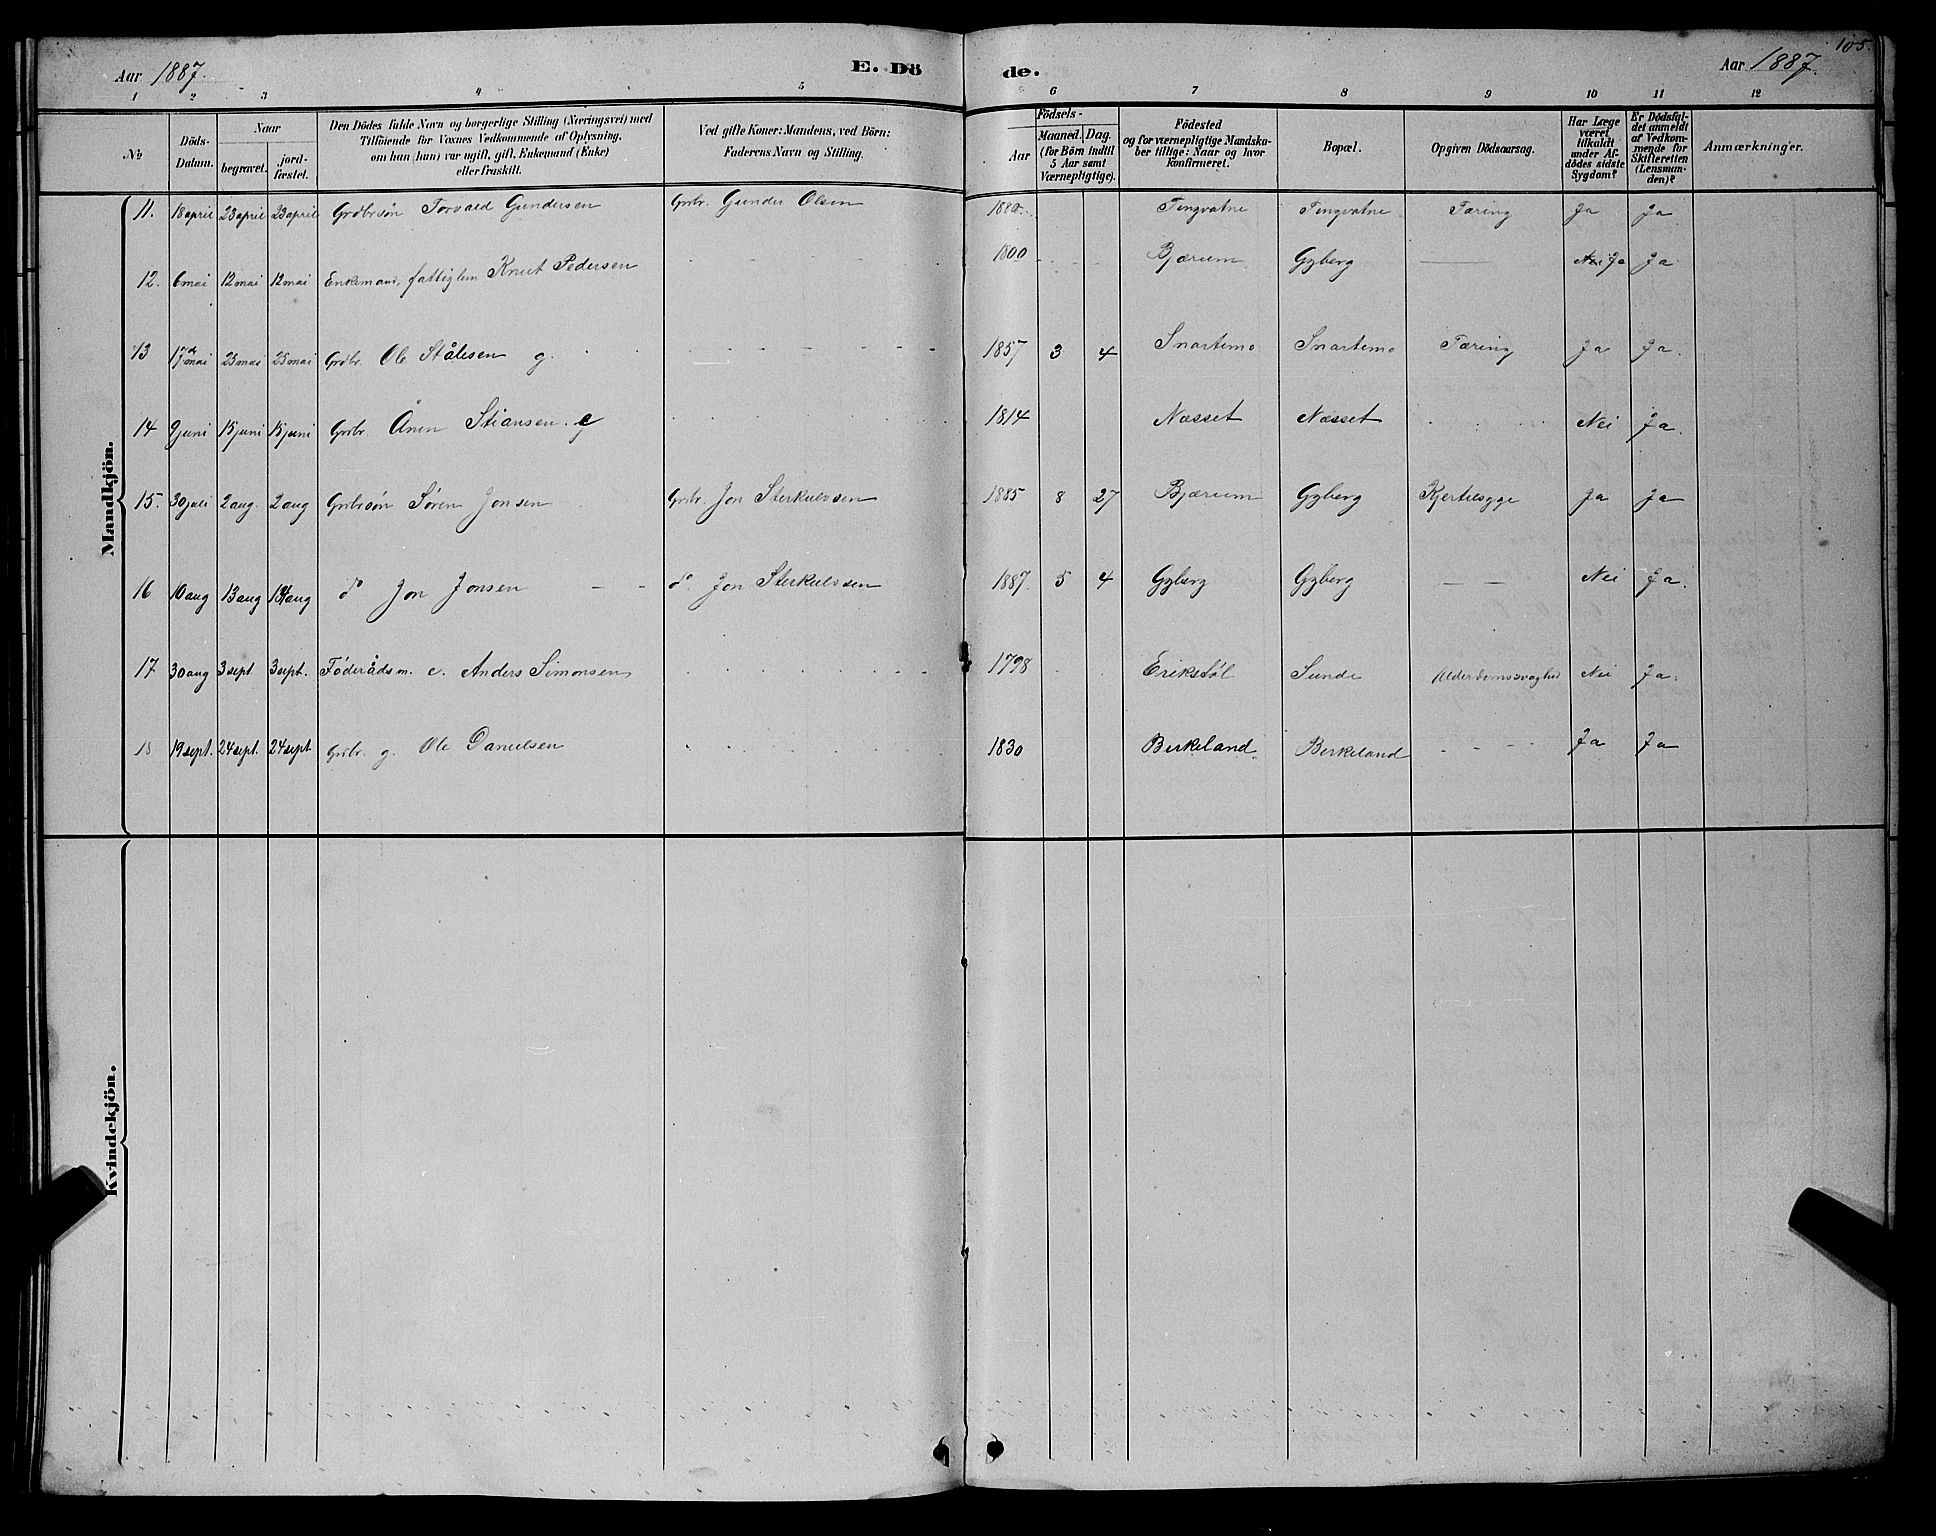 Aar 1887.
E. Dö
de.
Aar 1887.
105.
1 2 3 4 5 6 7 8 9 10 11 12
№
Döds-
Datum.
Naar
begravet.
jord-
fæstet.
Den Dödes fulde Navn og borgerlige Stilling (Næringsvei) med
Tilföiende for Voxnes Vedkommende af Oplysning,
om han (hun) var ugift, gift, Enkemand (Enke)
eller fraskilt.
Ved gifte Koner: Mandens, ved Börn:
Faderens Navn og Stilling.
Födsels-
Aar
Maaned. Dag.
(for Börn indtil
5 Aar samt
Værnepligtige).
Födested
og for værnepligtige Mandska-
ber tillige: Naar og hvor
konfirmeret.
Bopæl.
Opgiven Dödsaarsag.
Har Læge
været
tilkaldt
under Af-
dödes sidste
Sygdom?
Er Dödsfal-
det anmeldt
af Vedkom-
mende for
Skifteretten
(Lensman-
den)?
Anmærkninger.
Mandkjön.
11. 18 april 23 april 23 april Grdbrsön Torvald Gundersen Grdbr. Gunder Olsen 1880 Tingvatne Tingvatne Tæring Ja Ja
12. 6 mai 12 mai 12 mai Enkemand, fattiglem Knut Pedersen 1800 Bjærum Gyberg Nei Ja Ja
13 17 mai 25 mai 25 mai Grdbr. Ole Ståle​sen g. 1857 3 4 Snartemo Snartemo Tæring Ja Ja.
14 9 juni 15 juni 15 juni Grdbr. Ånen Stiansen. 1814 Næsset Næsset Nei Ja.
15. 30 juli 2 aug. 2 aug Grdbrsön Sören Jonsen Grdbr. Jon Sterkulvsen 1885 8 27 Bjærum Gyberg Kjertelsyge Ja Ja
16 10 aug 13 aug aug do Jon Jonsen do. Jon Sterkulvsen 1887. 5 4 Gyberg Gyberg Nei Ja.
17 30 aug 3 sept 3 sept. Föderådsm. e. Anders Simonsen 1798 Erikstöl Sunde Alderdomssvaghed Nei Ja.
18 19 sept. 24 sept. 24 sept. Grdbr. g. Ole Danielsen 1830 Birkeland Birkeland Ja Ja
Kvindekjön.